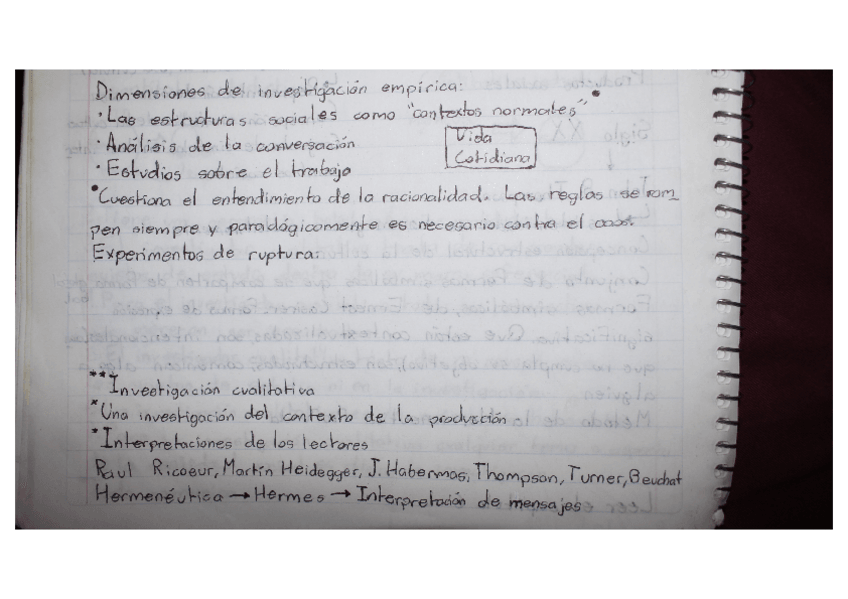 Dimensiones de investigación empírica:
• Las estructuras sociales como "contextos normales".
• Análisis de la conversación
Vida
Cotidiana
• Estudios sobre el trabajo
• Cuestiona el entendimiento de la racionalidad. Las reglas se rom
pen siempre y paradógicamente es necesario contra el
Experimentos de ruptura.
*** Investigación cualitativa
* Una investigación del contexto de la producción
* Interpretaciones de los lectores
Paul Ricoeur, Martín Heidegger, J. Habermas, Thompson, Turner, Beuchat
Hermenéutica → Hermes → Interpretación de mensajes